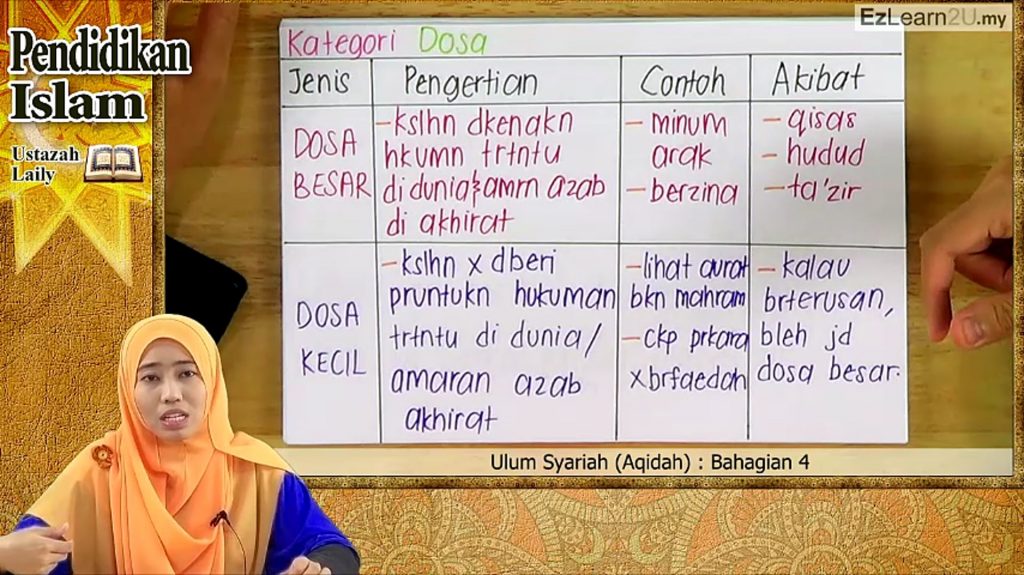 Pendidikan
Islam
Ustazah
Laily
EzLearn2U.my
Kategori Dosa
Jenis
Pengertian
Contoh
Akibat
DOSA
BESAR
-kslhn dkenakn
hkumn trtntu
di dunia & amrn azab
di akhirat
- minum
arak
- berzina
- qisas
- hudud
- ta'zir
DOSA
KECIL
-kslhn x dberi
pruntukn hukuman
trtntu di dunia/
amaran azab
akhirat
-lihat aurat
bkn mahram
-ckp prkara
xbrfaedah
- kalau
brterusan,
bleh jd
dosa besar.
Ulum Syariah (Aqidah) : Bahagian 4